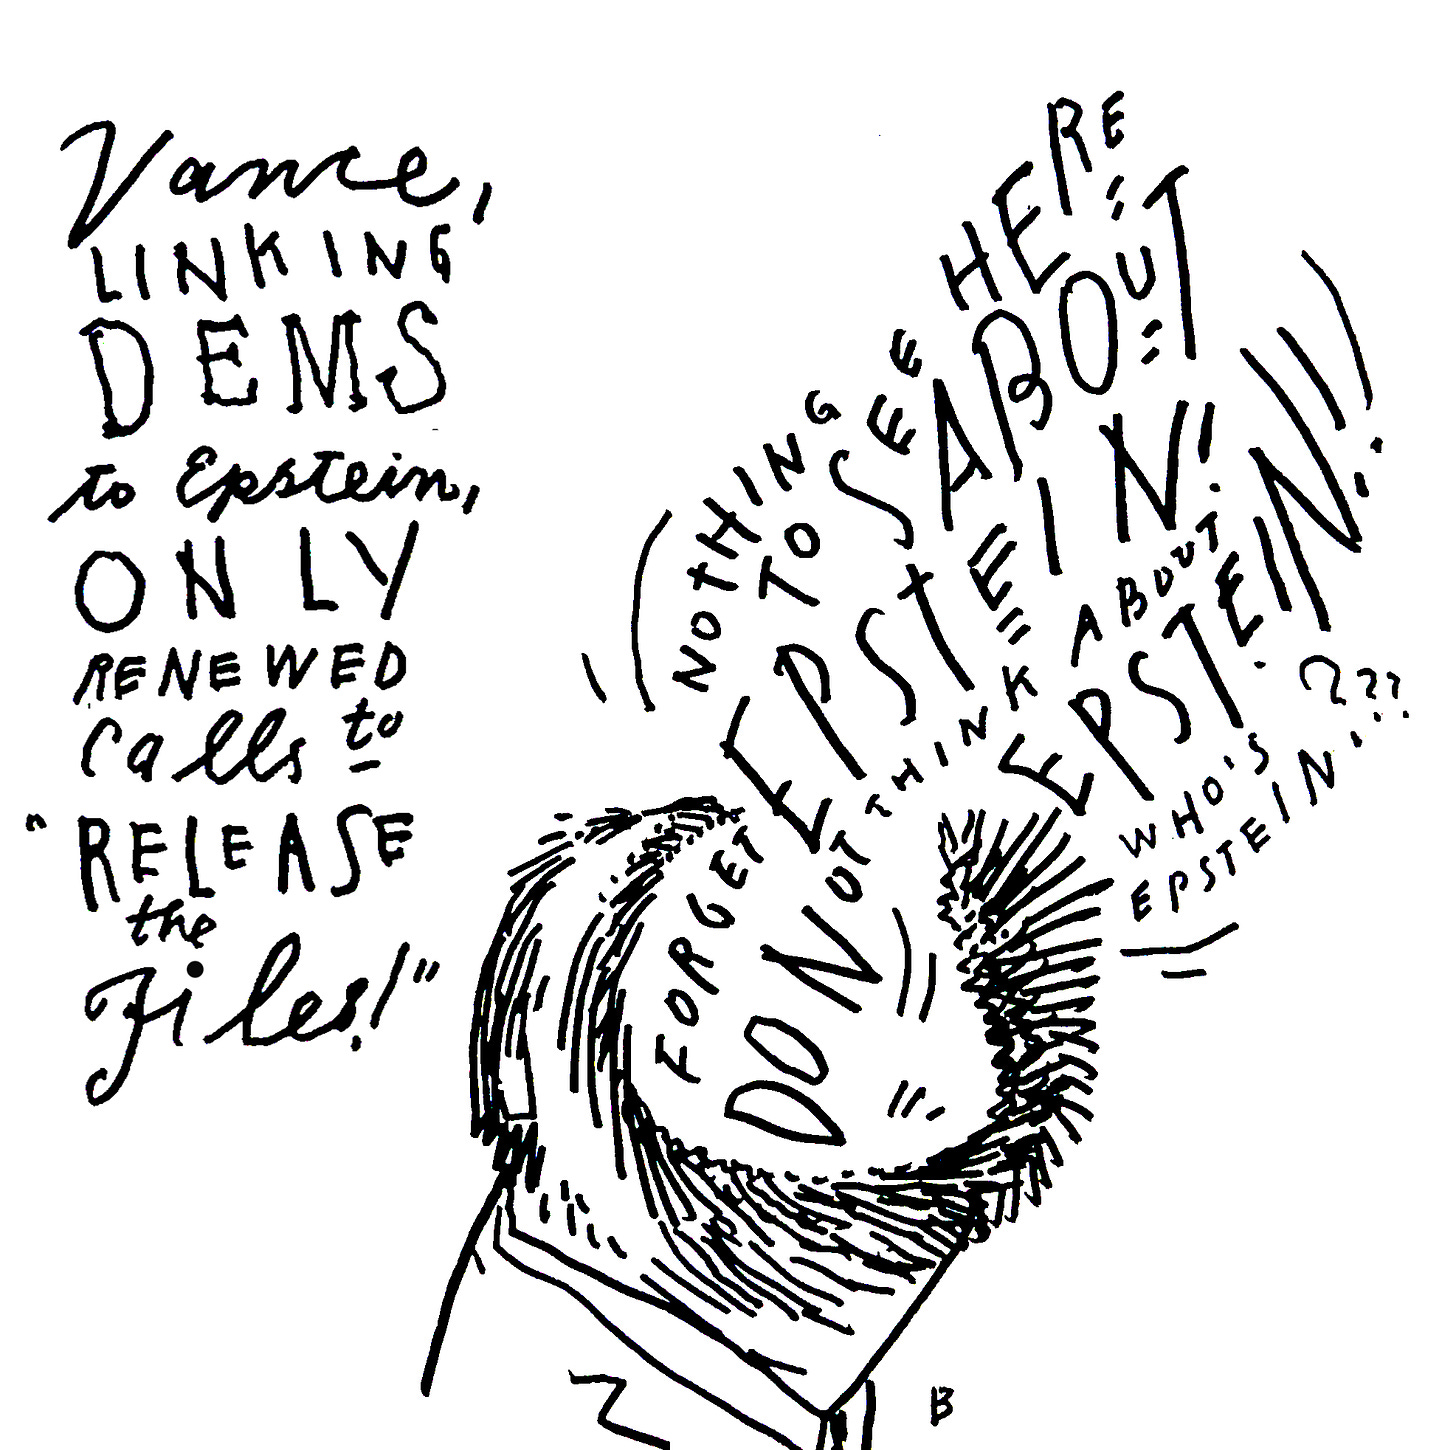 Vance,
LINKING
DEMS
to Epstein,
ONLY
RENEWED
Calls to
"RELEASE
the
Files!"
NOTHING
TO SEE
HERE!
FORGET
EPSTEIN!
ABOUT
DO NOT THINK ABOUT
EPSTEIN!
WHO'S
EPSTEIN???
B